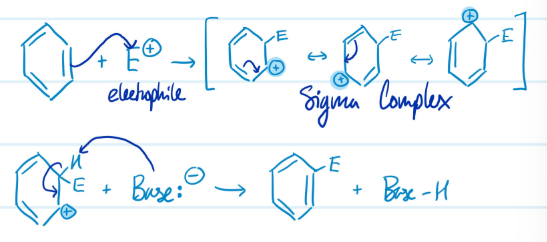 + E⊕ → [ E ⊕ ↔ E ⊕ ↔ ⊕ E ]
electrophile Sigma Complex
H E ⊕ + Base:⊖ → E + Base-H